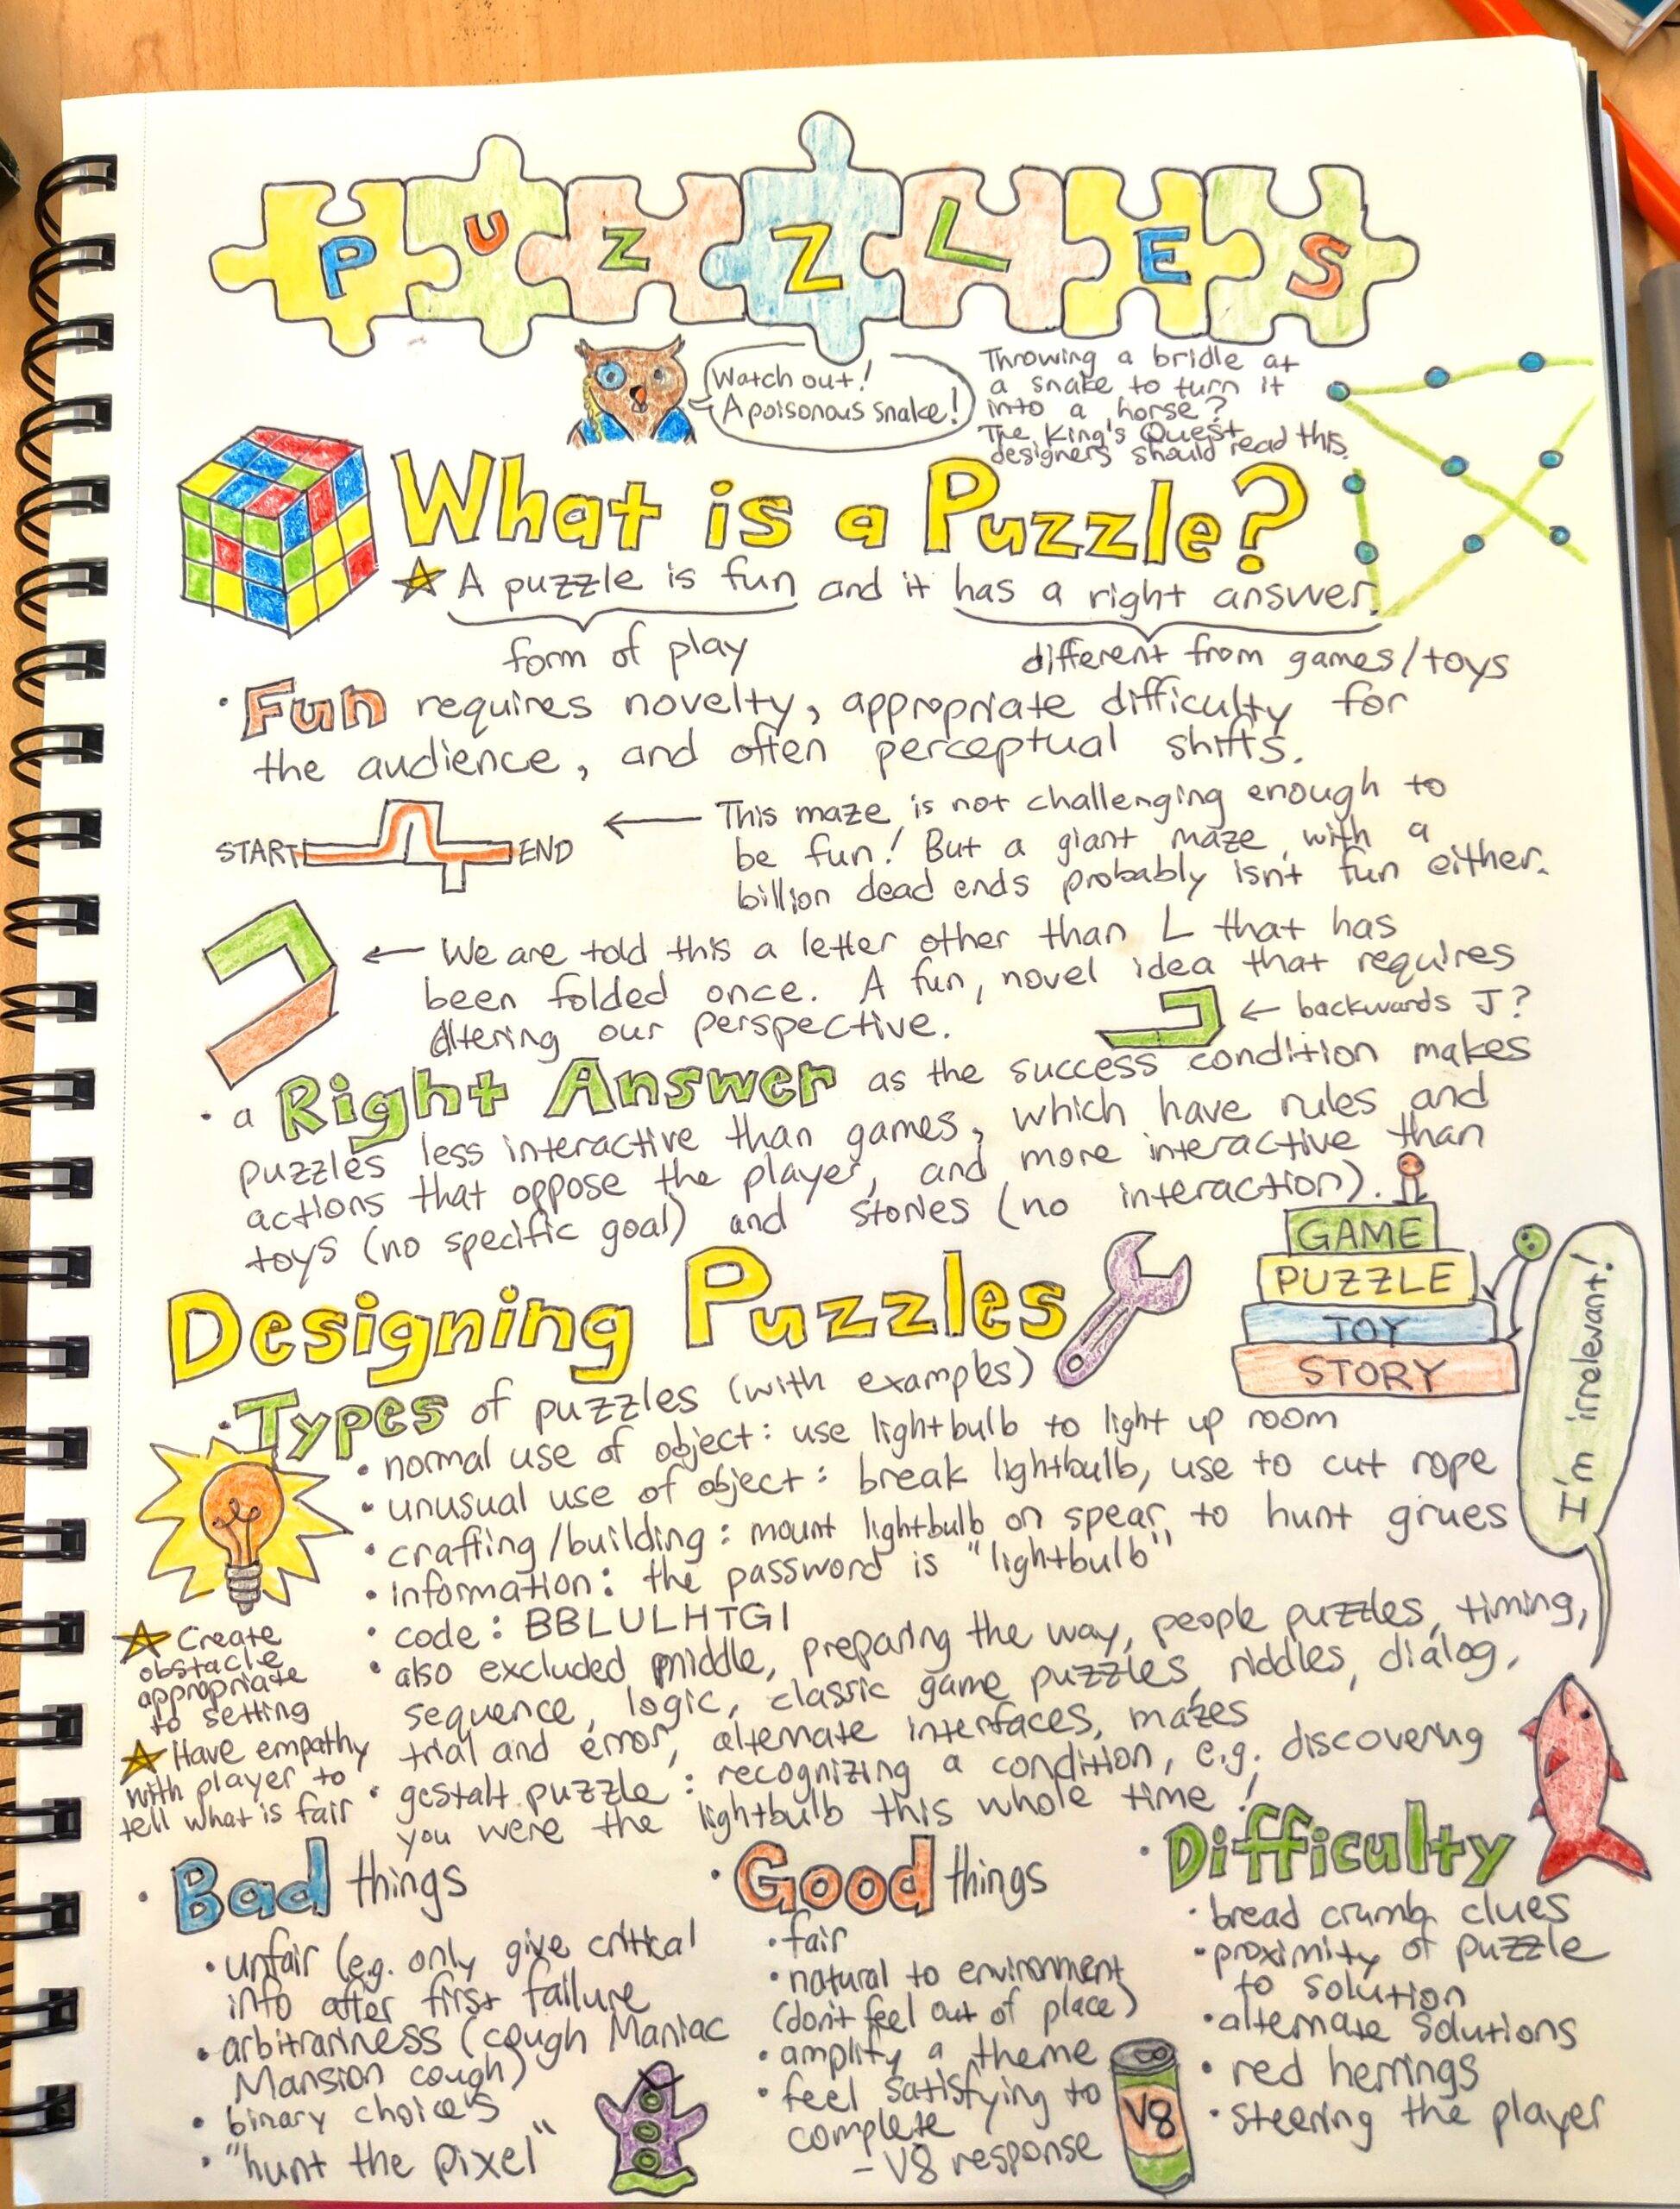 PUZZLES
Watch out!
A poisonous snake!
Throwing a bridle at
a snake to turn it
into a horse?
The King's Quest
designers should read this.
What is a Puzzle?
A puzzle is fun and it has a right answer.
form of play
different from games/toys
· Fun requires novelty, appropriate difficulty for
the audience, and often perceptual shifts.
START
END
← This maze is not challenging enough to
be fun! But a giant maze with a
billion dead ends probably isn't fun either.
← We are told this a letter other than L that has
been folded once. A fun, novel idea that requires
altering our perspective.
← backwards J?
· a Right Answer as the success condition makes
puzzles less interactive than games, which have rules and
actions that oppose the player, and more interactive than
toys (no specific goal) and stories (no interaction).
GAME
PUZZLE
TOY
STORY
I'm irrelevant!
Designing Puzzles
· Types of puzzles (with examples)
· normal use of object: use lightbulb to light up room
· unusual use of object: break lightbulb, use to cut rope
· crafting/building: mount lightbulb on spear to hunt grues
· information: the password is "lightbulb"
· code: BBLULHTGI
· also excluded middle, preparing the way, people puzzles, timing,
sequence, logic, classic game puzzles, riddles, dialog,
trial and error, alternate interfaces, mazes
· gestalt puzzle: recognizing a condition, e.g. discovering
you were the lightbulb this whole time!
Create
obstacle
appropriate
to setting
Have empathy
with player to
tell what is fair
· Bad things
· unfair (e.g. only give critical
info after first failure
· arbitrariness (cough Maniac
Mansion cough)
· binary choices
· "hunt the pixel"
· Good things
· fair
· natural to environment
(don't feel out of place)
· amplify a theme
· feel satisfying to
complete
- V8 response
V8
· Difficulty
· bread crumb clues
· proximity of puzzle
to solution
· alternate solutions
· red herrings
· steering the player